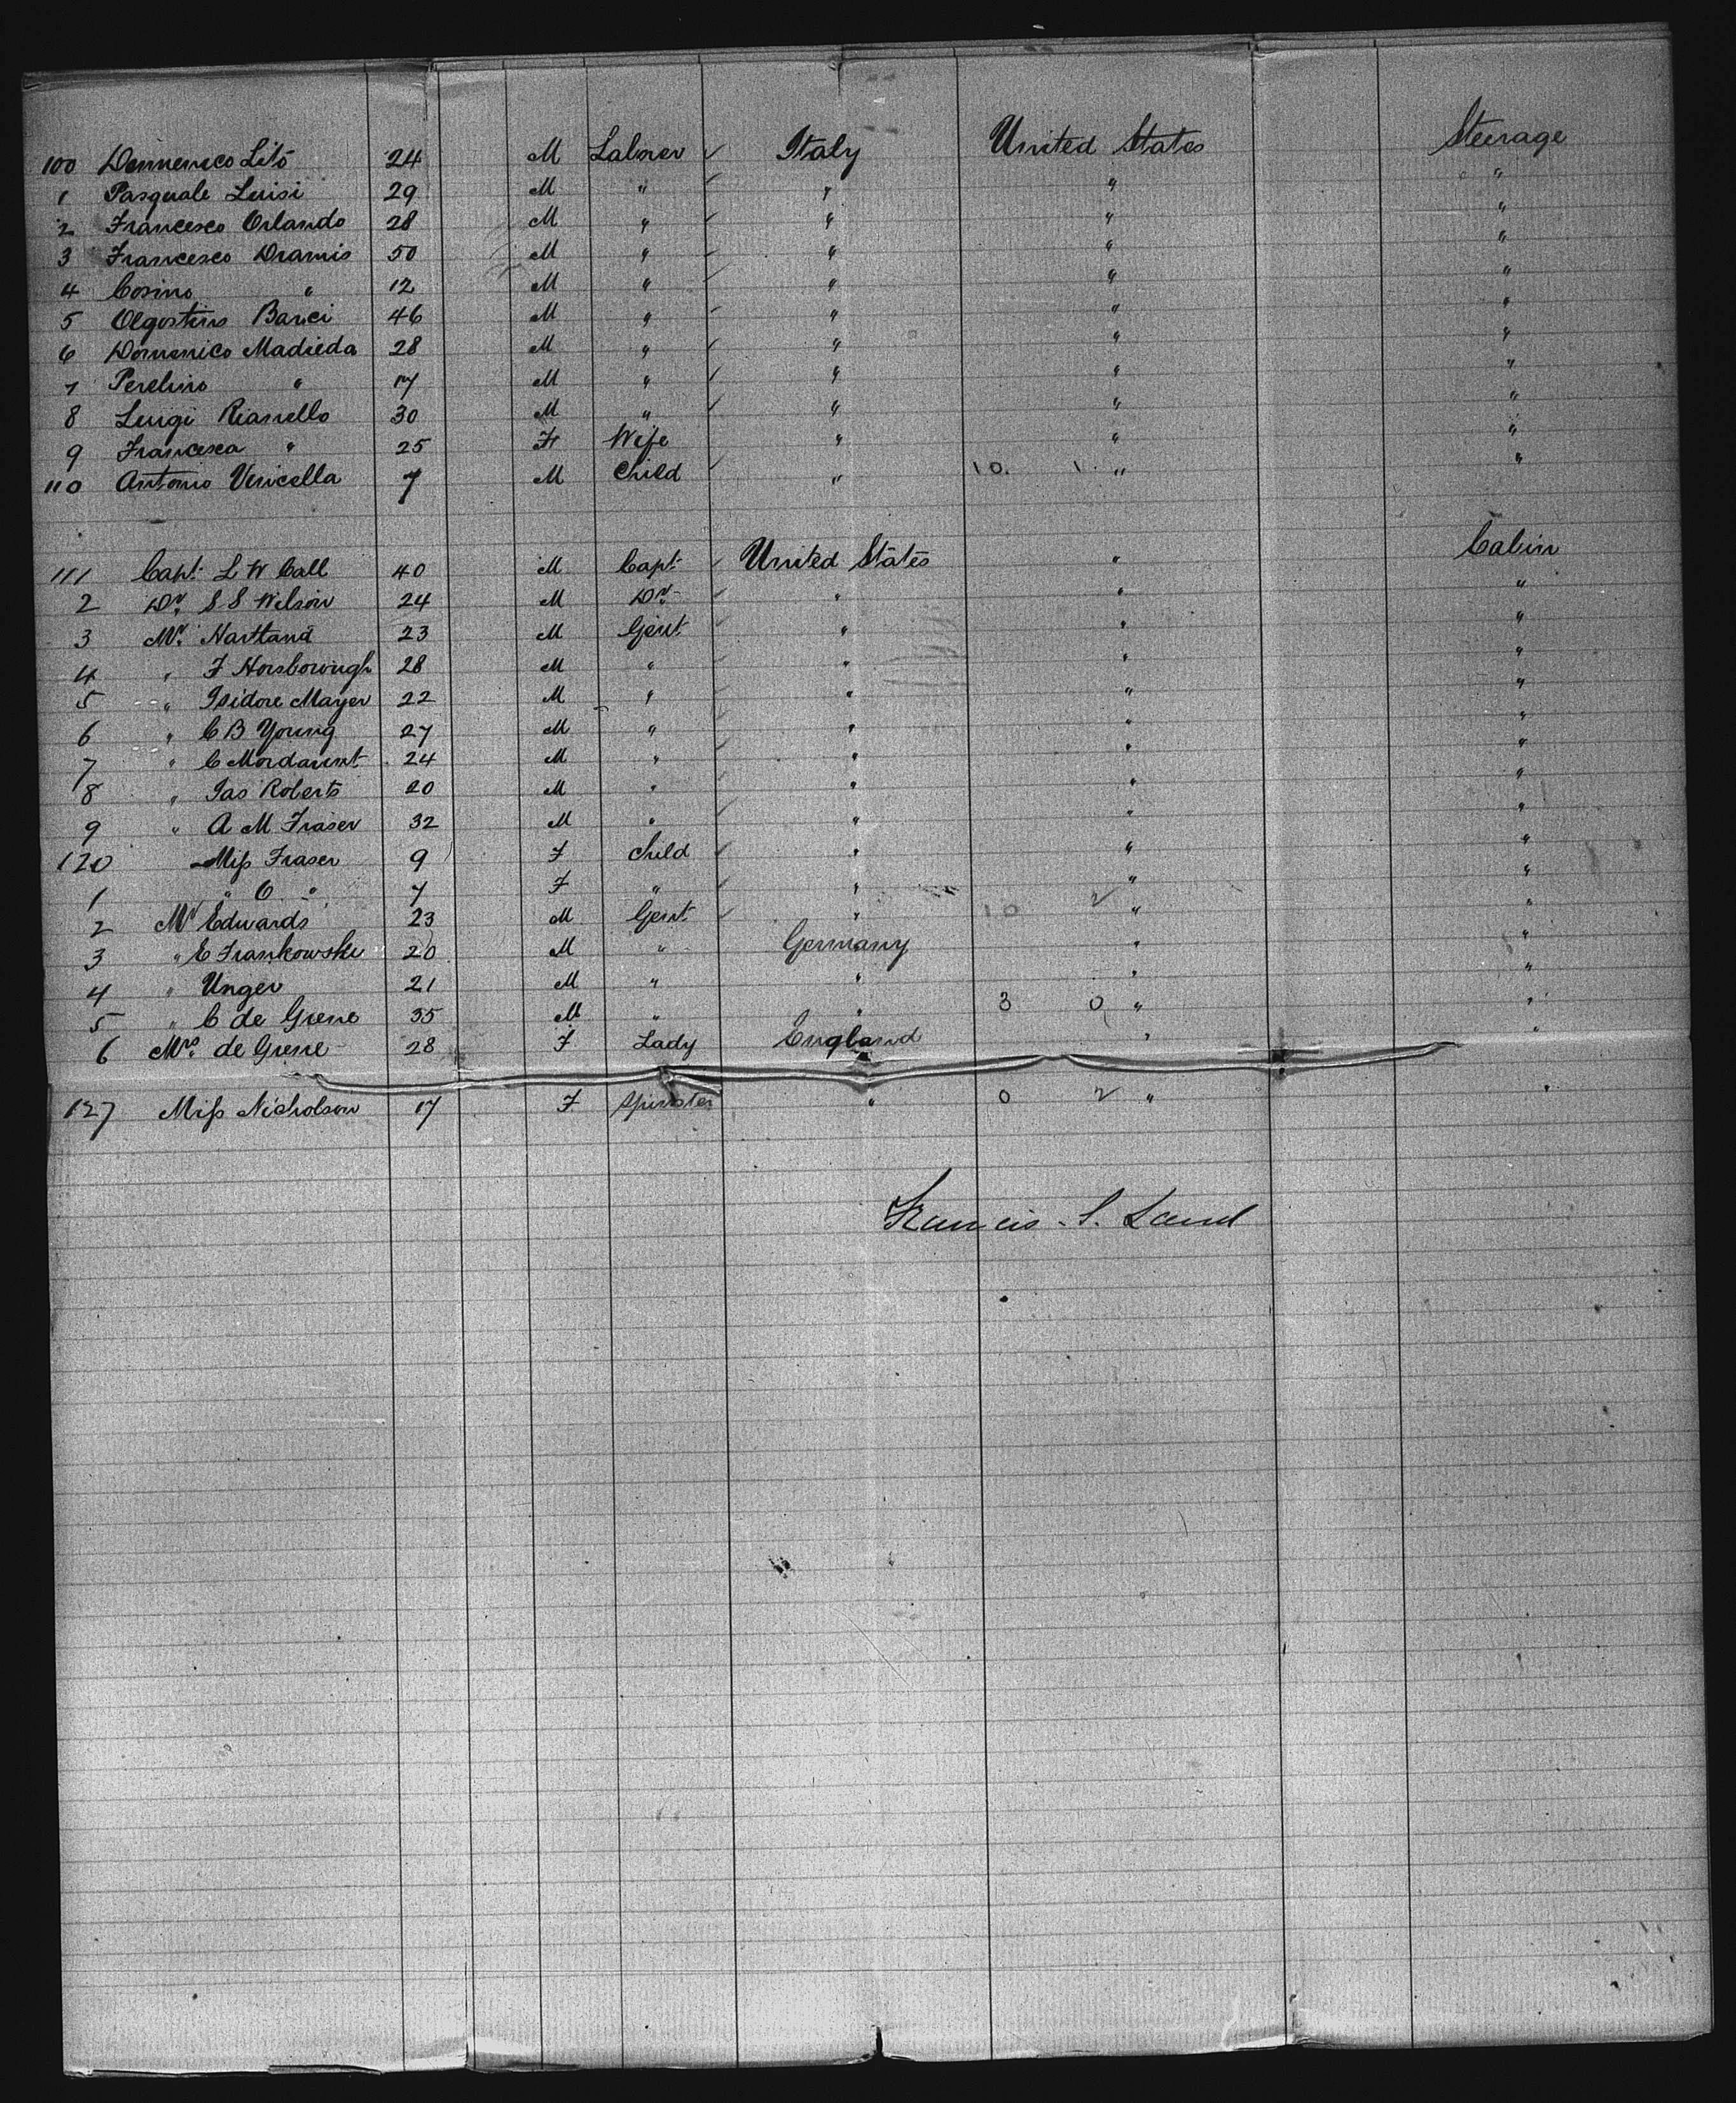 100 Domenico Lito 24 M Laborer Italy United States Steerage
1 Pasquale Luisi 29 M " " " "
2 Francesco Orlando 28 M " " " "
3 Francesco Dramis 50 M " " " "
4 Cosimo " 12 M " " " "
5 Agostino Barci 46 M " " " "
6 Domenico Madieda 28 M " " " "
7 Perelino " 17 M " " " "
8 Luigi Rianello 30 M " " " "
9 Francesca " 25 F Wife " " "
110 Antonio Vericella 7 M Child " 10. 1. " "
111 Capt. L W Call 40 M Capt. United States " Cabin
2 Dr. S S Wilson 24 M Dr. " " "
3 Mr. Hartland 23 M Gent. " " "
4 " F Horsborough 28 M " " " "
5 " Isidore Mayer 22 M " " " "
6 " C B Young 27 M " " " "
7 " C Mordaunt 24 M " " " "
8 " Jas Roberts 20 M " " " "
9 " A M Fraser 32 M " " " "
120 Miss Fraser 9 F Child " " "
1 " C " 7 F " " " "
2 Mr Edwards 23 M Gent. " 10 2 " "
3 " E Frankowski 20 M " Germany " "
4 " Unger 21 M " " " "
5 " C de Grene 35 M " " 3 0 " "
6 Mrs. de Grene 28 F Lady England " "
127 Miss Nicholson 17 F Spinster " 0 2 " "
Francis S. Land